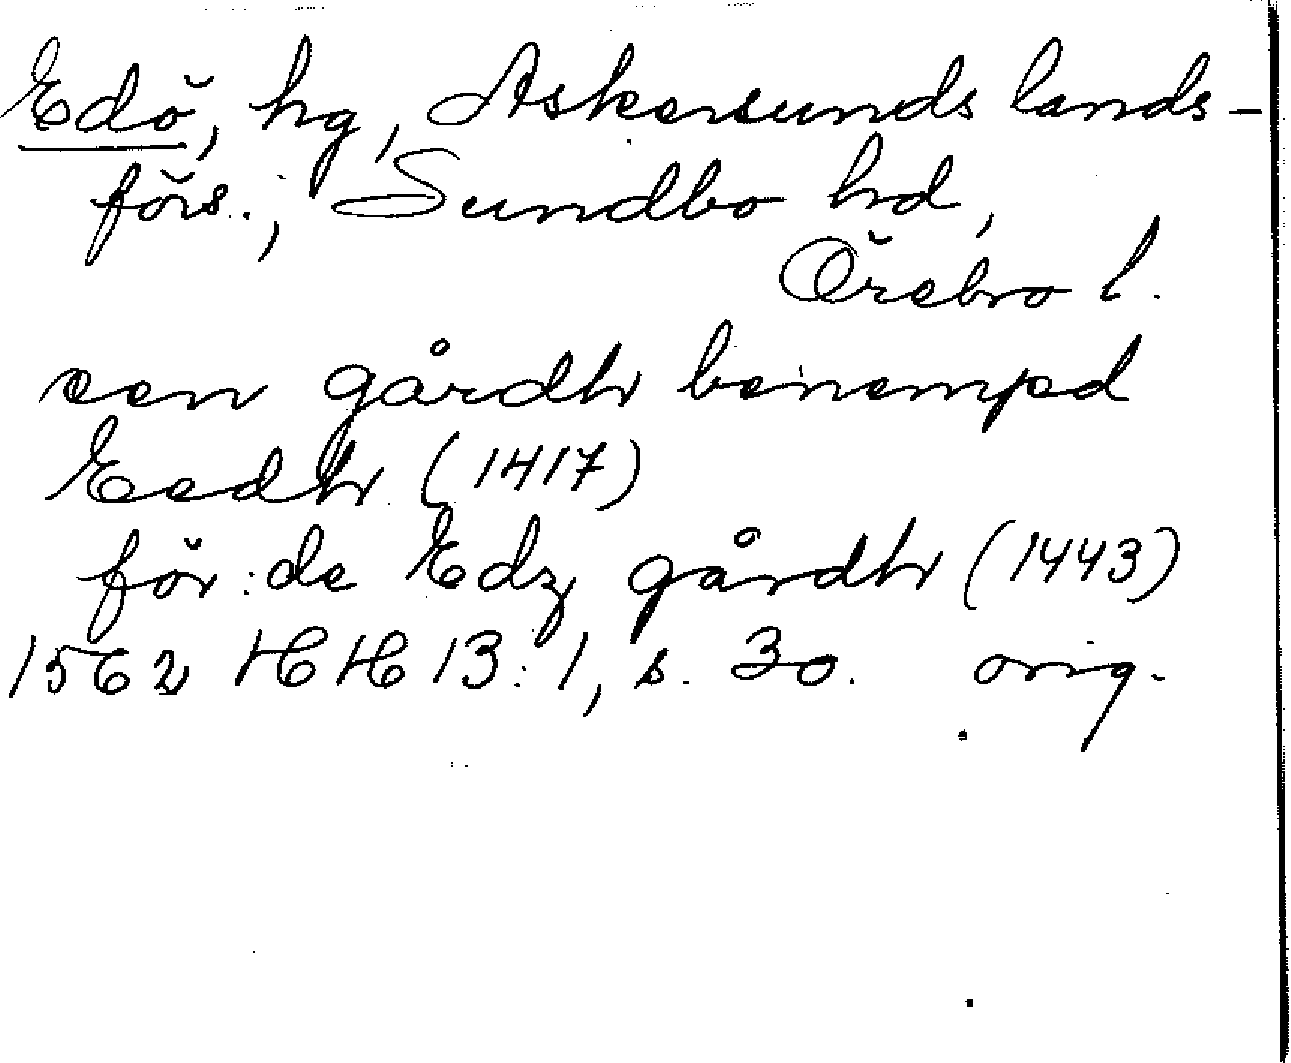 Edö, hg, Askersunds lands-
förs., Sundbo hd,
Örebro l.
een gårdh benempd
Eedh (1417)
för: de Edz gårdh (1443)
1562 HH 13:1, s. 30. orig.